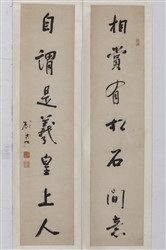 相賞有松石間意
自謂是羲皇上人